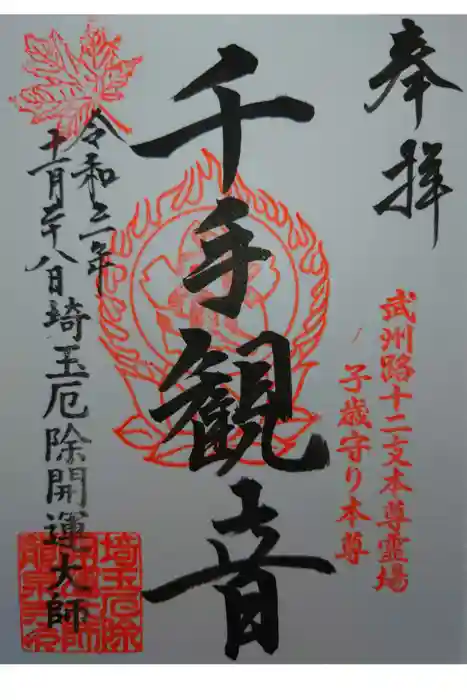 奉拝
武州路十二支本尊霊場
子歳守り本尊
千手観音
令和三年
十一月二十八日
埼玉厄除開運大師